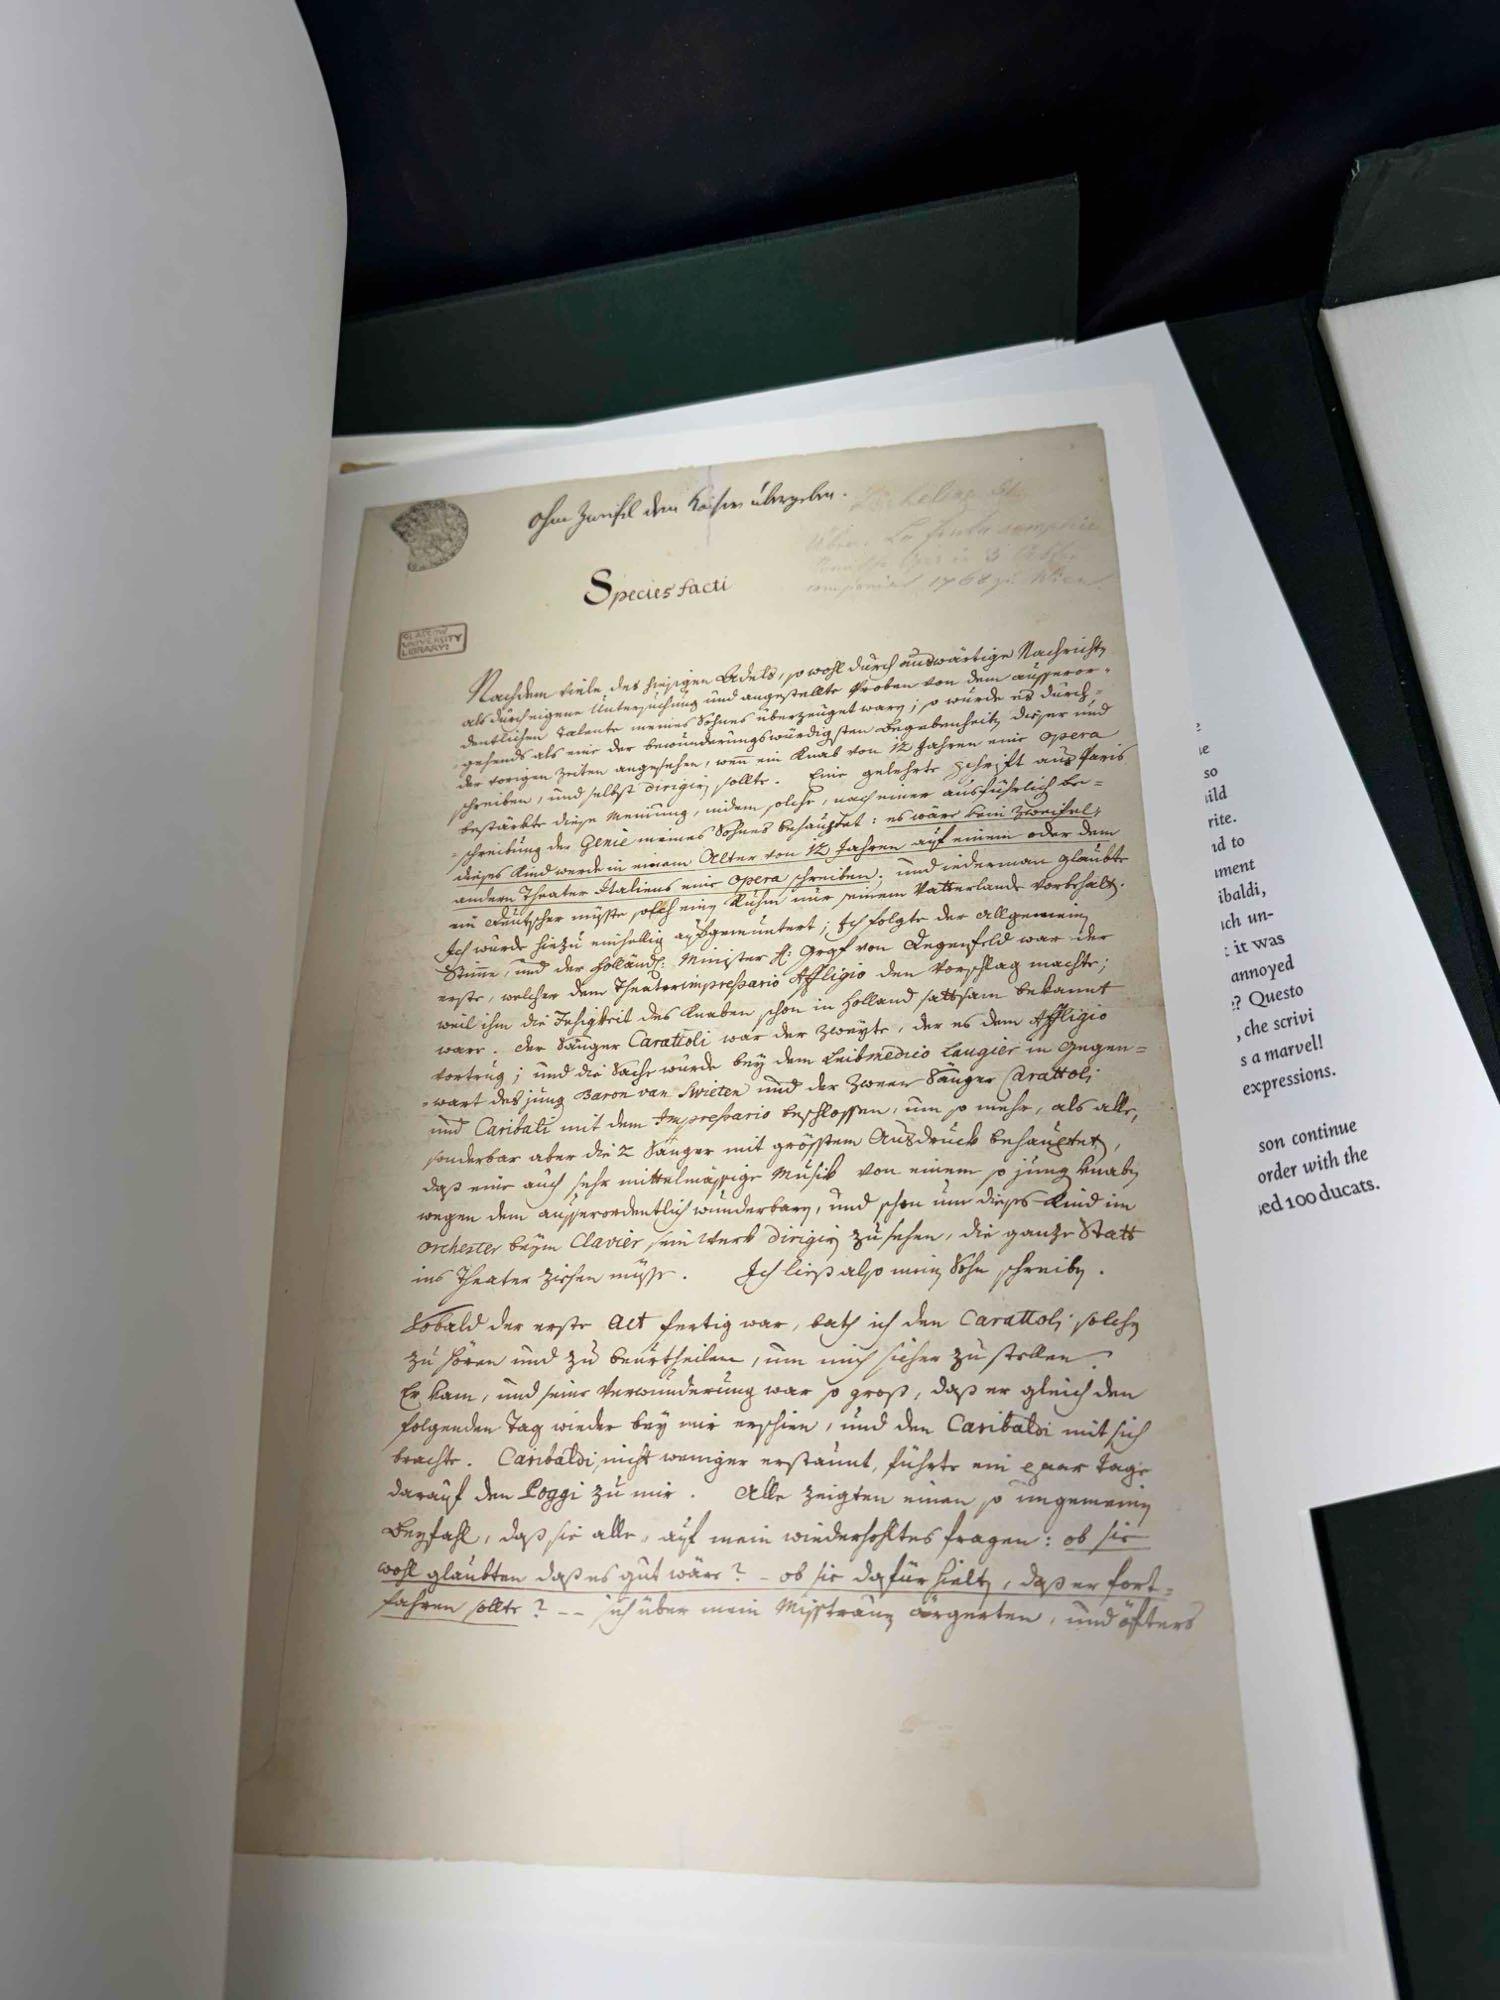 Ohne Zweifel dem Kaiser übergeben.
componirt 1768 zu Wien.
Species facti
GLASGOW
UNIVERSITY
LIBRARY:
Nachdem viele des hiesigen Adels, so wohl durch auswärtige Nachrichtn
als durch eigene Untersuchung und angestellte Proben von dem ausseror-
dentlichen Talente meines Sohnes überzeuget warn; so wurde es durch-
gehends als eine der bewunderungswürdigsten Begebenheitn dieser und
der vorigen Zeiten angesehen, wenn ein Knab von 12 Jahren eine opera
schreiben, und selbst dirigirn sollte. Eine gelehrte Schrift aus Paris
bestärkte diese Meinung, indem solche, nach einer ausführlich be=
=schreibung des Genie meines Sohnes behauptet: es wäre kein Zweifel,
dieses Kind werde in einem Alter von 12 Jahren auf einem oder dem
andern Theater Italiens eine opera schreiben. und iederman glaubte
ein Deutscher müste solch einn Ruhm nur seinem Vatterlande vorbehaltn.
Ich wurde hiezu einhellig aufgemuntert; Ich folgte der allgemeinn
Stimme, und der Holländ: Minister H: Graf von Degenfeld war der
erste, welcher dem Theaterimpressario Affligio den Vorschlag machte;
weil ihm die Fehigkeit des Knaben schon in Holland sattsam bekannt
ware. der Sänger Carattoli war der zweyte, der es dem Affligio
vortrug; und die Sache wurde bey dem Leibmedico Laugier in Gegen=
=wart des jung Baron van Swieten und der zween Sänger Carattoli
und Caribaldi mit dem Impressario beschlossen, um so mehr, als alle,
sonderbar aber die 2 Sänger mit grösstem Ausdruck behauptetn,
daß eine auch sehr mittelmässige Musik von einem so jung Knabn
wegen dem ausserordentlich wunderbarn, und schon um dieses Kind im
orchester beym Clavier sein Werk dirigirn zu sehen, die ganze Statt
ins Theater ziehen müsse. Ich ließ also mein Sohn schreibn.
Sobald der erste Act fertig war, bath ich den Carattoli solchn
zu hören und zu beurtheilen, um mich sicher zu stellen.
Er kam, und seine Verwunderung war so groß, daß er gleich den
folgenden Tag wieder bey mir erschien, und den Caribaldi mit sich
brachte. Caribaldi, nicht weniger erstaunt, führte ein paar Tage
darauf den Poggi zu mir. Alle zeigten einen so ungemeinn
Beyfahl, daß sie alle, auf mein wiederhohltes fragen: ob sie
wohl glaubten daß es gut wäre? - ob sie dafür hieltn, daß er fort-
fahren sollte? -- sich über mein Misstrauen ärgerten, und öfters
so
ild
rite.
nd to
ument
ibaldi,
ich un-
: it was
annoyed
:? Questo
, che scrivi
s a marvel!
expressions.
son continue
order with the
sed 100 ducats.